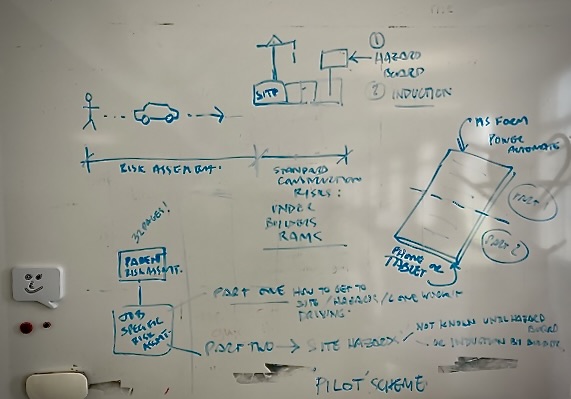 ① HAZARD BOARD
② INDUCTION
SITE
MS FORM
POWER AUTOMATE
RISK ASSESMENT.
STANDARD
CONSTRUCTION
RISKS:
UNDER
BUILDERS
RAMS
PART 1
PART 2
PHONE OR
TABLET
32 PAGES!
PARENT
RISK ASSMT.
JOB
SPECIFIC
RISK
ASMT.
PART ONE HOW TO GET TO
SITE / HAZARDS /
DRIVING.
PART TWO → SITE HAZARDS
NOT KNOWN UNTIL HAZARD
BOARD
OR INDUCTION BY
PILOT SCHEME